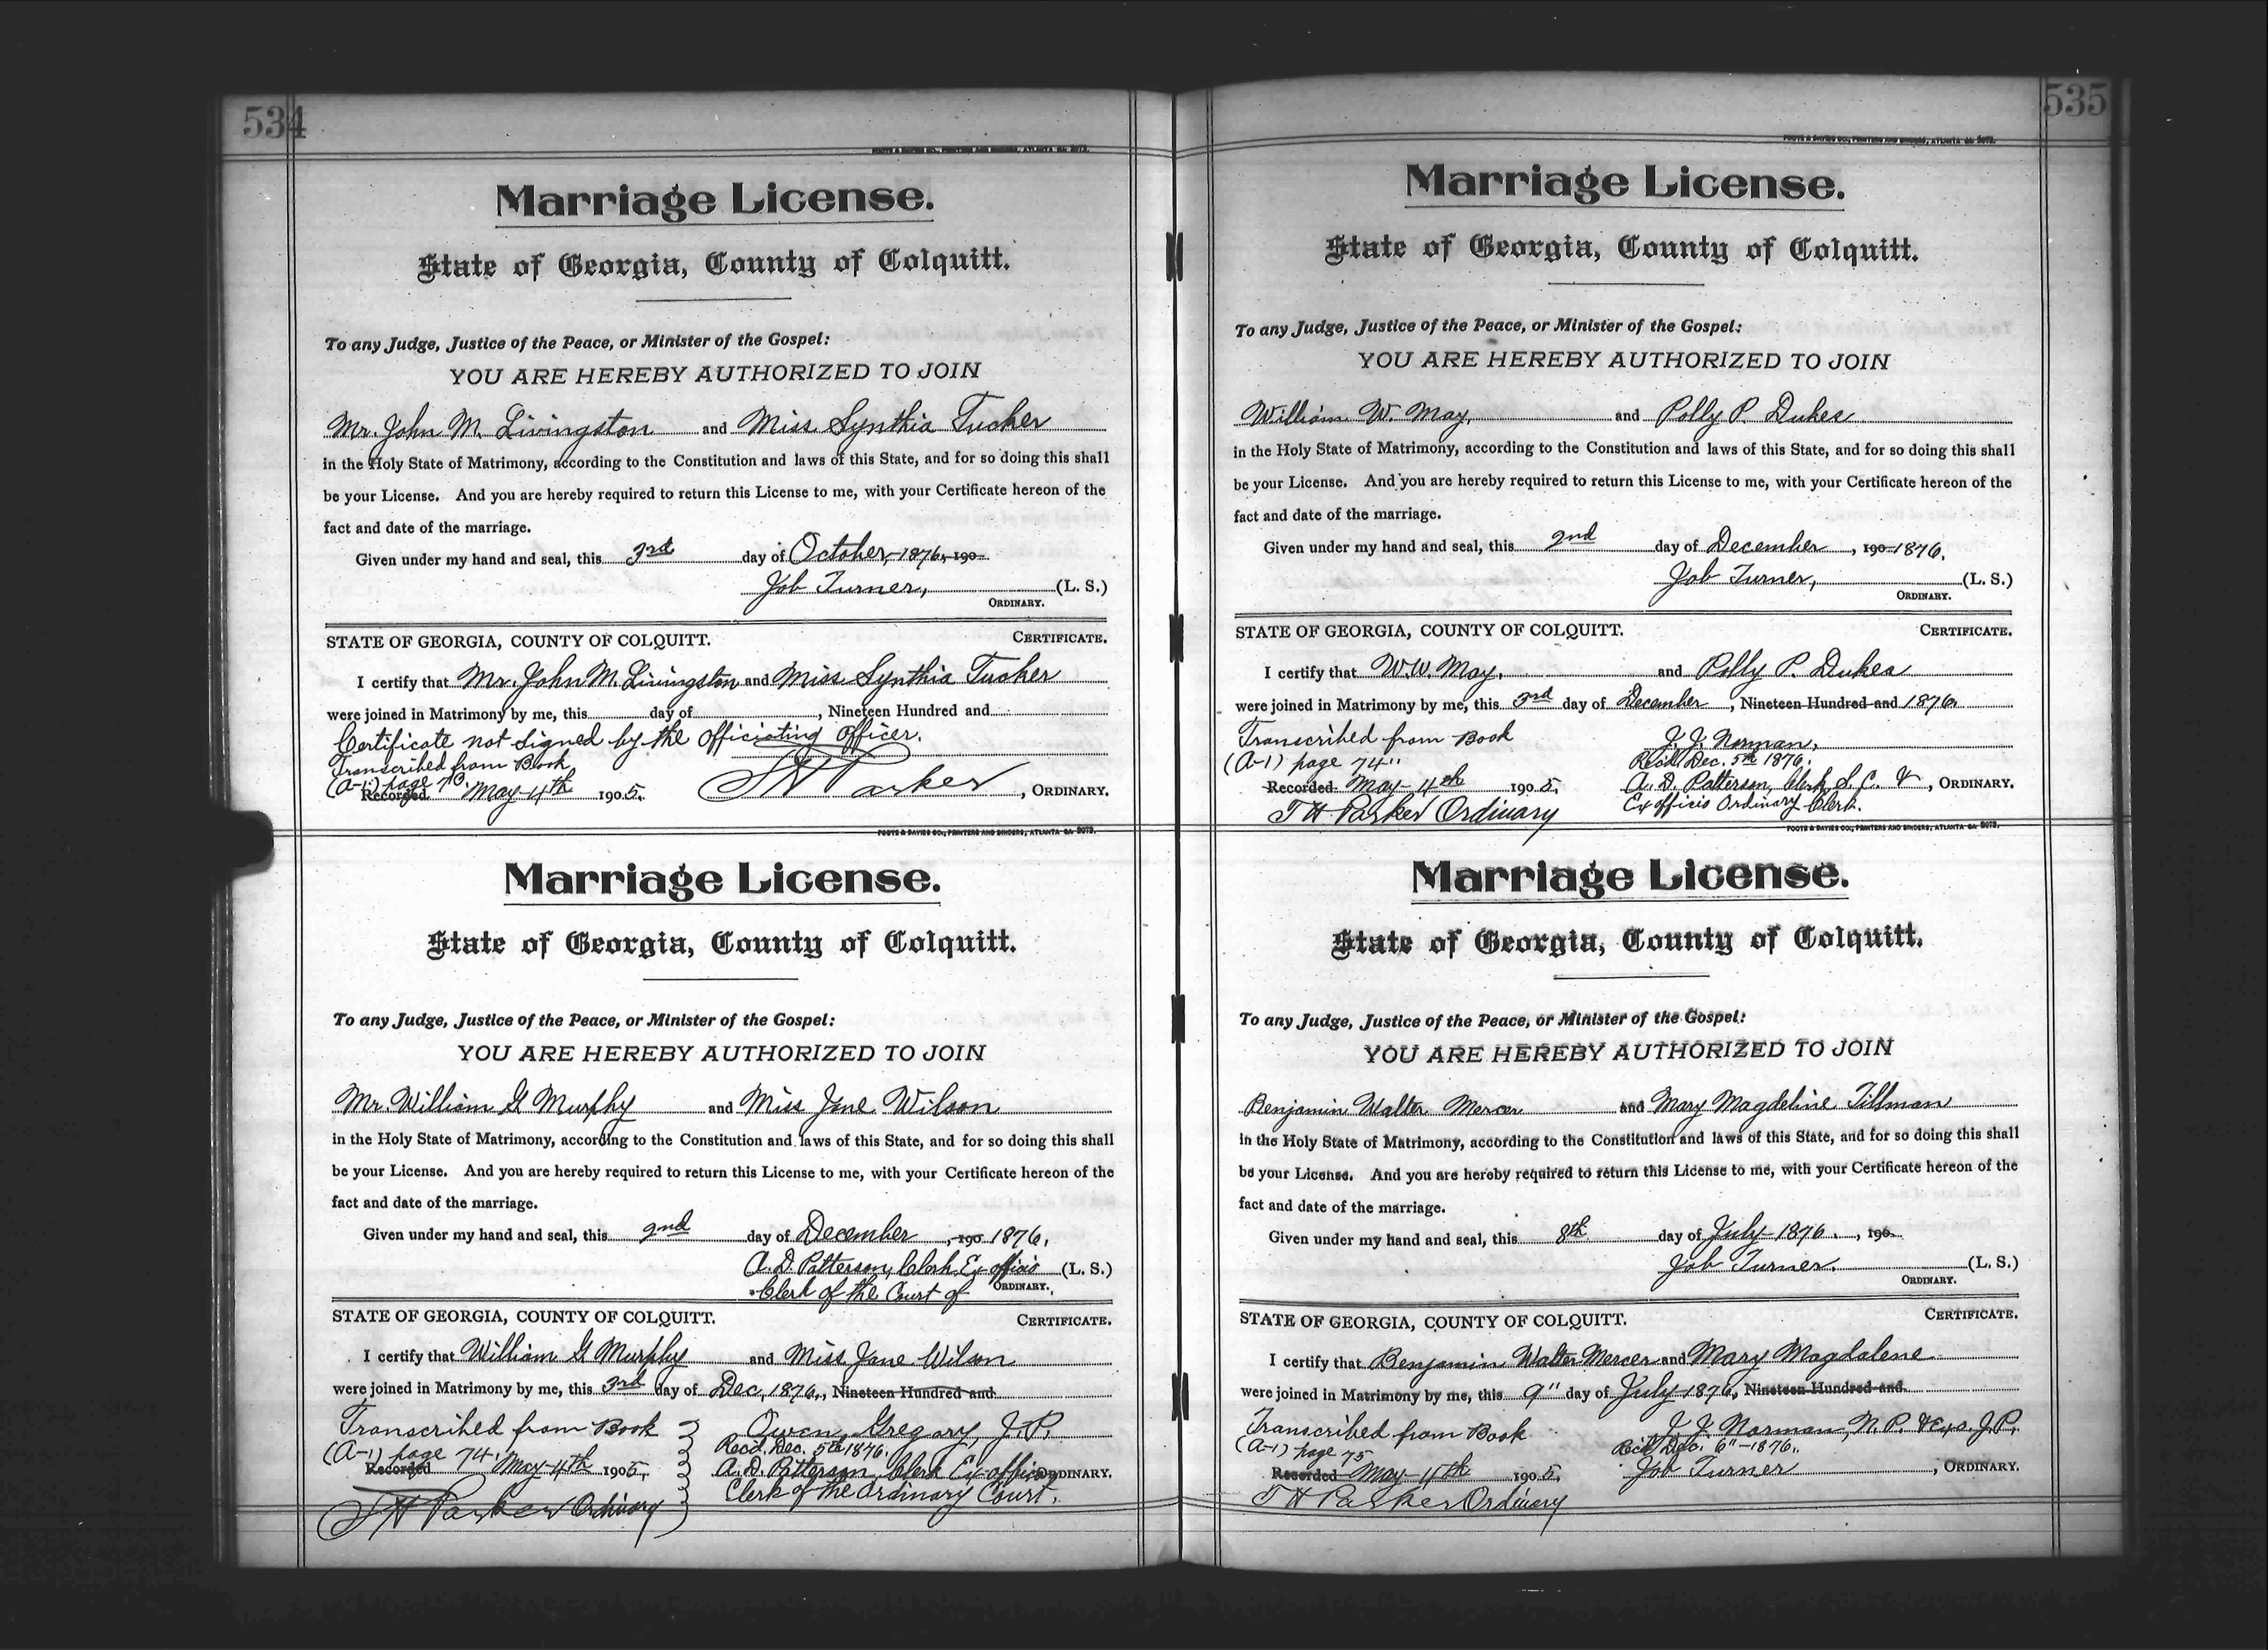 534
FOOTE & DAVIES CO., PRINTERS AND BINDERS, ATLANTA GA 2072.
Marriage License.
State of Georgia, County of Colquitt.
To any Judge, Justice of the Peace, or Minister of the Gospel:
YOU ARE HEREBY AUTHORIZED TO JOIN
Mr. John M. Livingston and Miss Synthia Tucker
in the Holy State of Matrimony, according to the Constitution and laws of this State, and for so doing this shall
be your License. And you are hereby required to return this License to me, with your Certificate hereon of the
fact and date of the marriage.
Given under my hand and seal, this 3rd day of October, 1876, 190
Job Turner, (L. S.)
ORDINARY.
STATE OF GEORGIA, COUNTY OF COLQUITT. CERTIFICATE.
I certify that Mr. John M. Livingston and Miss Synthia Tucker
were joined in Matrimony by me, this day of , Nineteen Hundred and
Certificate not signed by the officiating officer.
Transcribed from Book
(A-1) page 73.
Recorded May 4th 1905. T H Parker, ORDINARY.
FOOTE & DAVIES CO., PRINTERS AND BINDERS, ATLANTA GA 2072.
Marriage License.
State of Georgia, County of Colquitt.
To any Judge, Justice of the Peace, or Minister of the Gospel:
YOU ARE HEREBY AUTHORIZED TO JOIN
Mr. William G Murphy and Miss Jane Wilson
in the Holy State of Matrimony, according to the Constitution and laws of this State, and for so doing this shall
be your License. And you are hereby required to return this License to me, with your Certificate hereon of the
fact and date of the marriage.
Given under my hand and seal, this 2nd day of December, 190 1876,
A. D. Patterson, Clerk Ex officio (L. S.)
Clerk of the Court of ORDINARY.
STATE OF GEORGIA, COUNTY OF COLQUITT. CERTIFICATE.
I certify that William G Murphy and Miss Jane Wilson
were joined in Matrimony by me, this 3rd day of Dec, 1876, Nineteen Hundred and
Transcribed from Book Owen Gregory, J.P.
(A-1) page 74. Rec'd. Dec. 5th 1876.
Recorded May 4th 1905, A. D. Patterson, Clerk Ex-officio ORDINARY.
T H Parker Ordinary Clerk of the Ordinary Court.
535
FOOTE & DAVIES CO., PRINTERS AND BINDERS, ATLANTA GA 2072.
Marriage License.
State of Georgia, County of Colquitt.
To any Judge, Justice of the Peace, or Minister of the Gospel:
YOU ARE HEREBY AUTHORIZED TO JOIN
William W. May, and Polly P. Dukes
in the Holy State of Matrimony, according to the Constitution and laws of this State, and for so doing this shall
be your License. And you are hereby required to return this License to me, with your Certificate hereon of the
fact and date of the marriage.
Given under my hand and seal, this 2nd day of December, 190 1876.
Job Turner, (L. S.)
ORDINARY.
STATE OF GEORGIA, COUNTY OF COLQUITT. CERTIFICATE.
I certify that W. W. May, and Polly P. Dukes
were joined in Matrimony by me, this 3rd day of December, Nineteen Hundred and 1876.
Transcribed from Book J. J. Norman,
(A-1) page 74" Rec'd Dec. 5th 1876.
Recorded May 4th 1905, A. D. Patterson, Clerk S. C. & , ORDINARY.
T H Parker Ordinary Ex officio Ordinary Clerk.
FOOTE & DAVIES CO., PRINTERS AND BINDERS, ATLANTA GA 2072.
Marriage License.
State of Georgia, County of Colquitt.
To any Judge, Justice of the Peace, or Minister of the Gospel:
YOU ARE HEREBY AUTHORIZED TO JOIN
Benjamin Walter Mercer and Mary Magdeline Tillman
in the Holy State of Matrimony, according to the Constitution and laws of this State, and for so doing this shall
be your License. And you are hereby required to return this License to me, with your Certificate hereon of the
fact and date of the marriage.
Given under my hand and seal, this 8th day of July 1876, 190
Job Turner. (L. S.)
ORDINARY.
STATE OF GEORGIA, COUNTY OF COLQUITT. CERTIFICATE.
I certify that Benjamin Walter Mercer and Mary Magdalene
were joined in Matrimony by me, this 9" day of July 1876, Nineteen Hundred and
Transcribed from Book J. J. Norman, N. P. & Exo. J. P.
(A-1) page 75 Rec'd Dec. 6"-1876.
Recorded May 4th 1905, Job Turner, ORDINARY.
T H Parker Ordinary